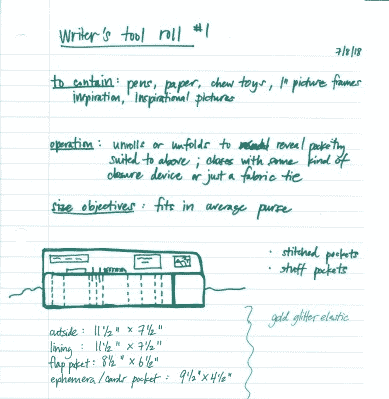 Writer's tool roll #1
7/8/18
to contain: pens, paper, chew toys, 1" picture frames
inspiration, inspirational pictures
operation: unrolls or unfolds to reveal pockets
suited to above; closes with some kind of
closure device or just a fabric tie
size objectives: fits in average purse
· stitched pockets
· stuff pockets
gold glitter elastic
outside: 11 1/2" x 7 1/2"
lining: 11 1/2" x 7 1/2"
flap pocket: 8 1/2" x 6 1/2"
ephemera/cards pocket: 9 1/2" x 4 1/2"